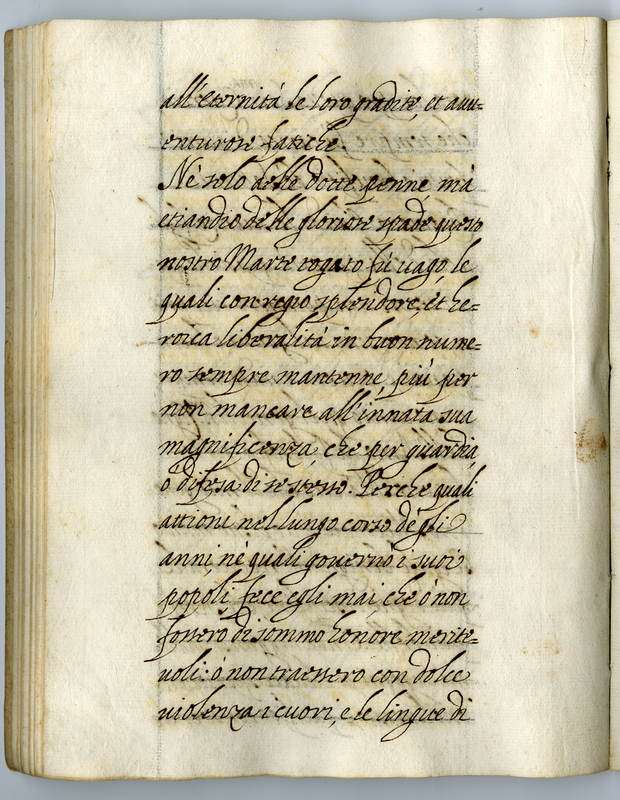 all'eternità le loro gradite, et auu=
enturose fatiche.
Nè solo delle dotte penne, mà
etiandio delle gloriose spade questo
nostro Marte togato fù uago, le
quali con regio splendore, et he=
roica liberalità in buon nume=
ro sempre mantenne, più per
non mancare all'innata sua
magnificenza, che per guardia,
ò difesa di se stesso. Perche quali
attioni nel lungo corso degli
anni, nè quali governò i suoi
popoli, fece egli mai, che ò non
fossero di sommo honore merite=
uoli: ò non traessero con dolce
violenza i cuori, e le lingue di